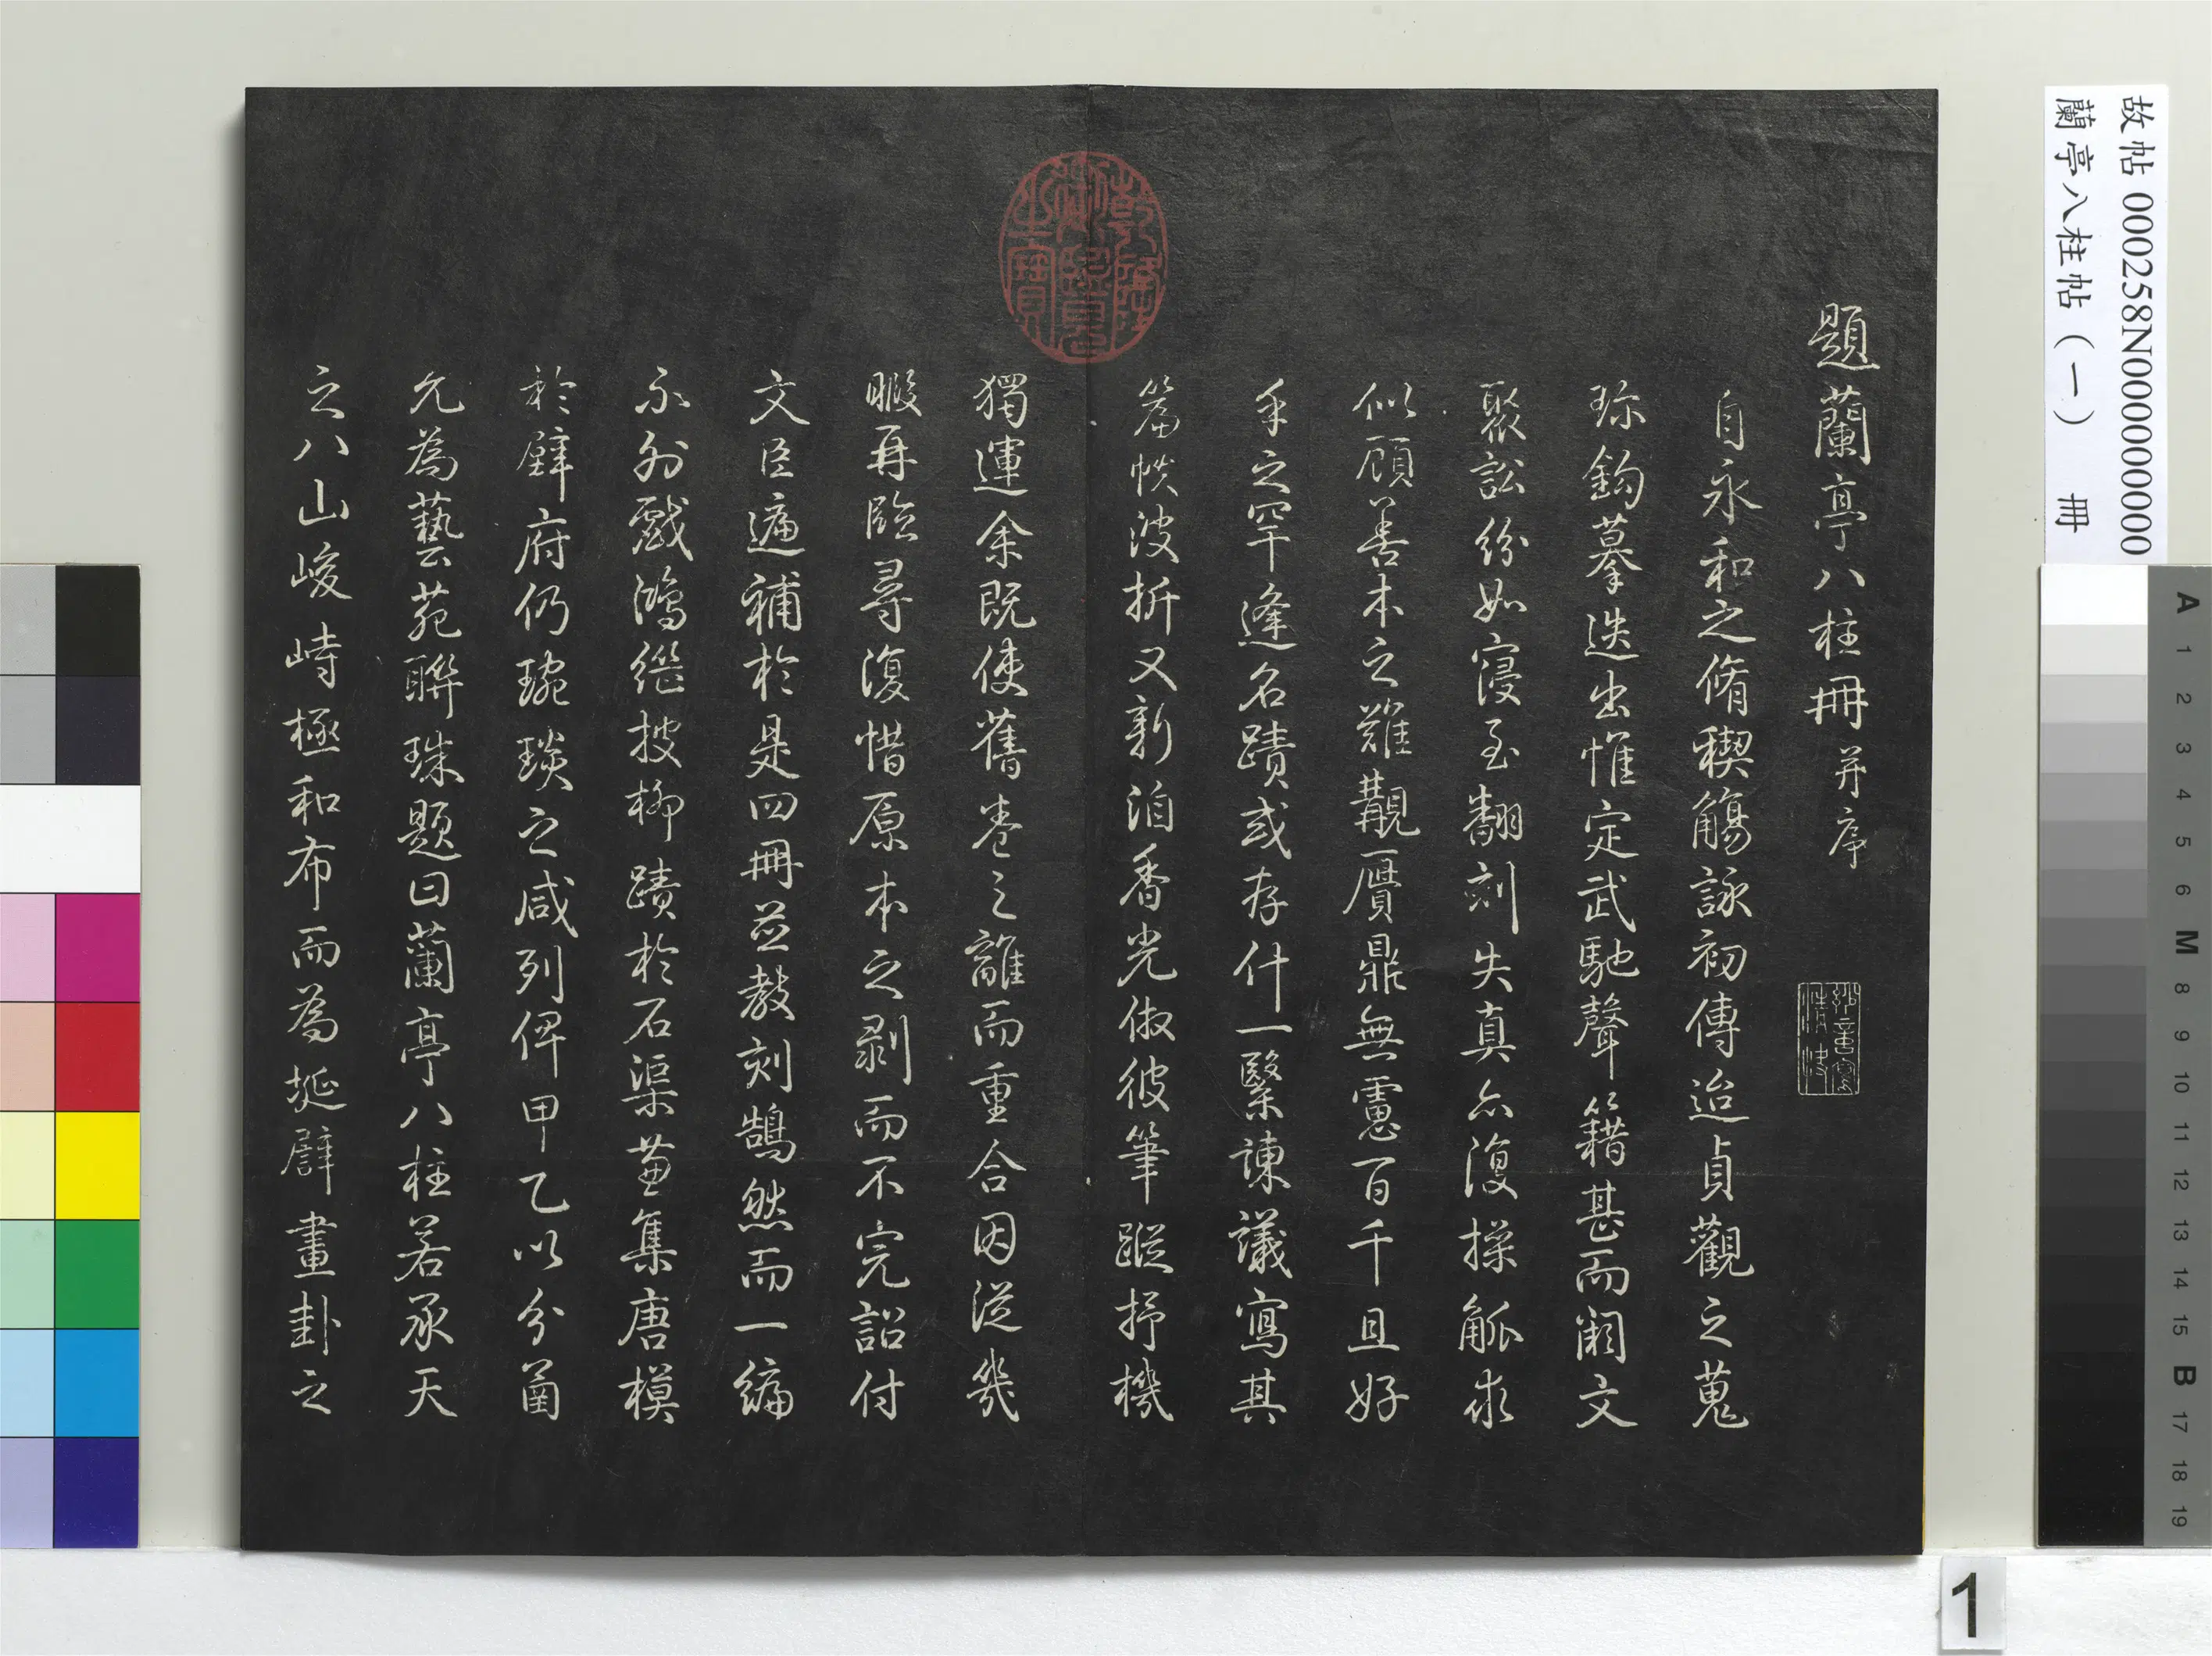 題蘭亭八柱冊并序
自永和之脩稧觴詠初傳迨貞觀之蒐
珎鈎摹迭出惟定武馳聲籍甚而闢文
聚訟紛如寖至翻刻失真亦復操觚求
似顧善本之難覯贗鼎無慮百千且好
手之罕逢名蹟或存什一繄諫議寫其
篇帙波折又新洎香光倣彼筆蹤抒機
獨運余既使舊卷之離而重合因從幾
暇再臨尋復惜原本之剝而不完詔付
文臣遍補於是四冊並教刻鵠然而一編
不外戲鴻繼搜柳蹟於石渠兼集唐模
於壁府仍琬琰之咸列俾甲乙以分函
允為藝苑聯珠題曰蘭亭八柱若承天
之八山峻峙極和布而為埏辟畫卦之
乾隆御覽之寶
故帖000258N000000000
蘭亭八柱帖（一） 冊
A 1 2 3 4 5 6 M 8 9 10 11 12 13 14 15 B 17 18 19
1